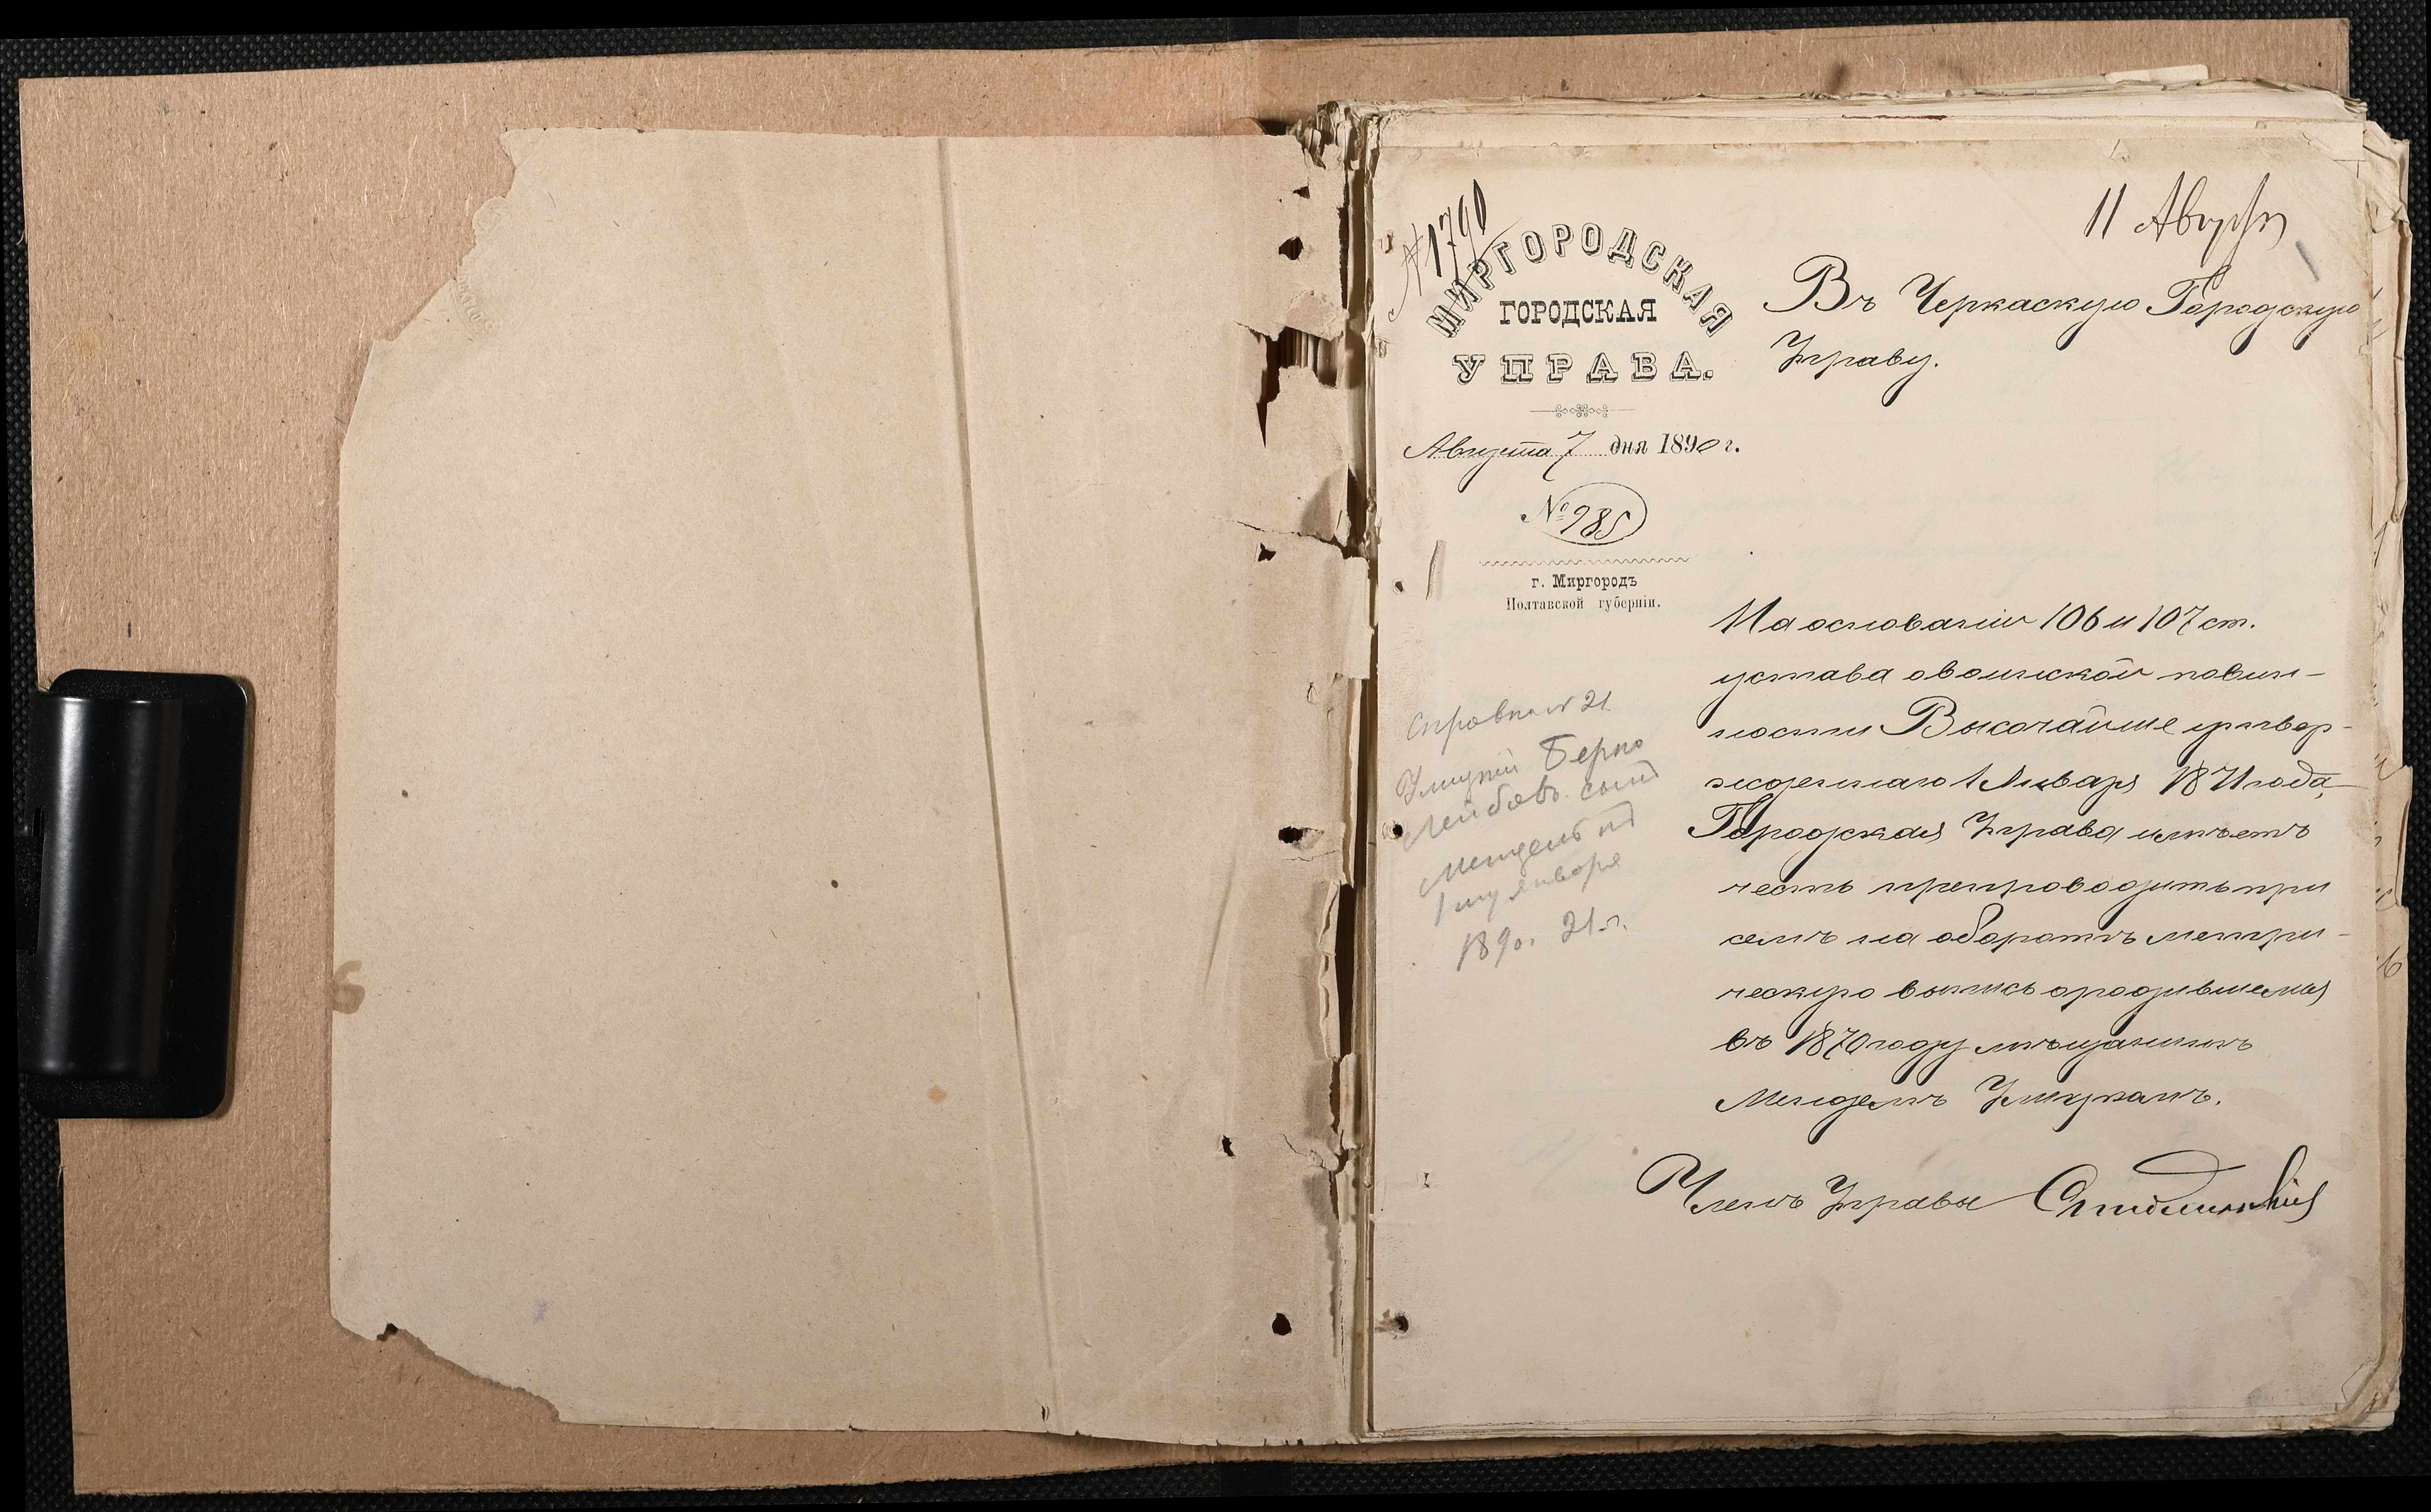 № 1790
11 Августа
МИРГОРОДСКАЯ
ГОРОДСКАЯ
УПРАВА.
Августа 7 дня 1890 г.
№ 985
г. Миргородъ
Полтавской губерніи.
Въ Черкаскую Городскую
Управу.
На основаніи 106 и 107 ст.
устава о воинской повин-
ности Высочайше утвер-
жденнаго 1 Января 1871 года,
Городская Управа имѣетъ
честь препроводить при
семъ на оборотѣ метри-
ческую выпись о родившемся
въ 1870 году мѣщанинѣ
Менделѣ
Членъ Управы
Берко
Лейбовъ сынъ
Мендель
1му января
1890. 21 л.